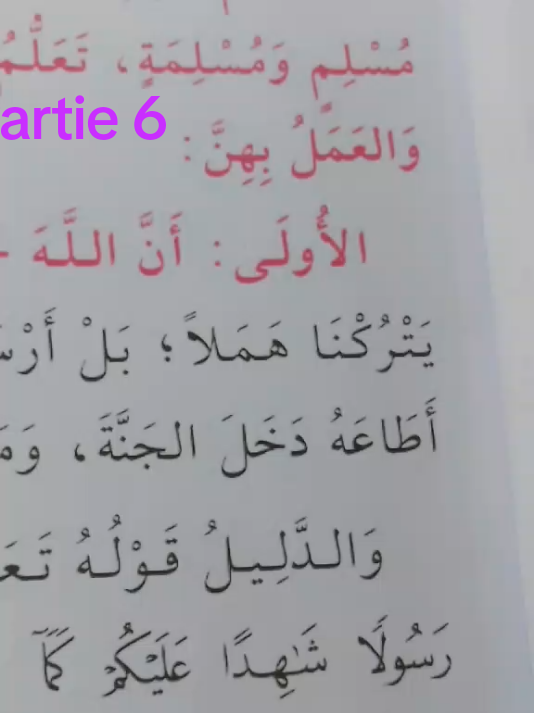 مُسْلِمٍ وَمُسْلِمَةٍ، تَعَلُّمُ
artie 6
وَالعَمَلُ بِهِنَّ :
الأُولَى : أَنَّ اللَّهَ -
يَتْرُكْنَا هَمَلاً؛ بَلْ أَرْسَ
أَطَاعَهُ دَخَلَ الجَنَّةَ، وَمَ
وَالدَّلِيلُ قَوْلُهُ تَعَ
رَسُولًا شَٰهِدًا عَلَيْكُمْ كَمَآ